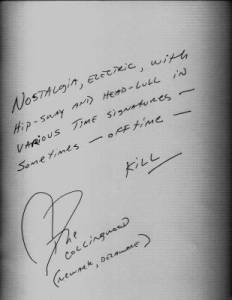 NOSTALGIA, ELECTRIC, with
HIP-SWAY AND HEAD-LULL IN
VARIOUS TIME SIGNATURES —
Sometimes — OFFTIME —
KILL
The
COLLINGWOOD
(NEWARK, DELAWARE)